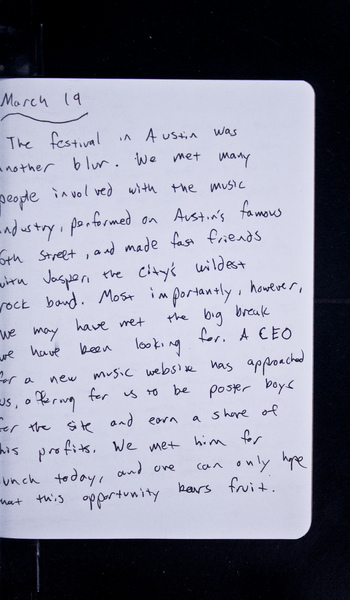 March 19
The festival in Austin was
another blur. We met many
people involved with the music
industry, performed on Austin's famous
6th street, and made fast friends
with Jasper, the City's wildest
rock band. Most importantly, however,
we may have met the big break
we have been looking for. A CEO
for a new music website has approached
us, offering for us to be poster boys
for the site and earn a share of
his profits. We met him for
lunch today, and one can only hope
that this opportunity bears fruit.